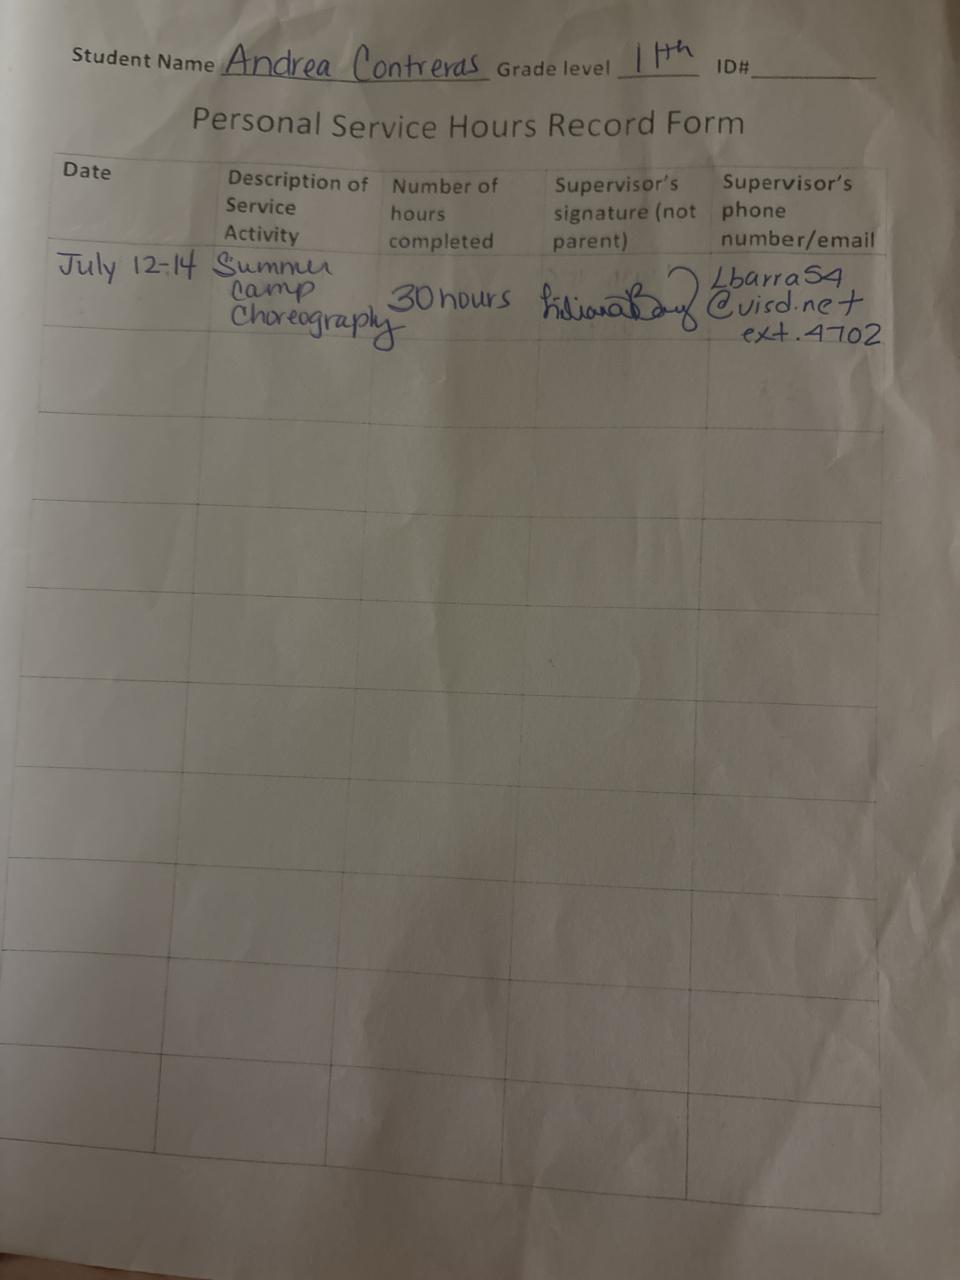 Student Name Andrea Contreras Grade level 11th ID#
Personal Service Hours Record Form
Date
Description of
Service
Activity
Number of
hours
completed
Supervisor's
signature (not
parent)
Supervisor's
phone
number/email
July 12-14
Summer
Camp
Choreography
30 hours
Liliana
Lbarra54
@uisd.net
ext. 4702